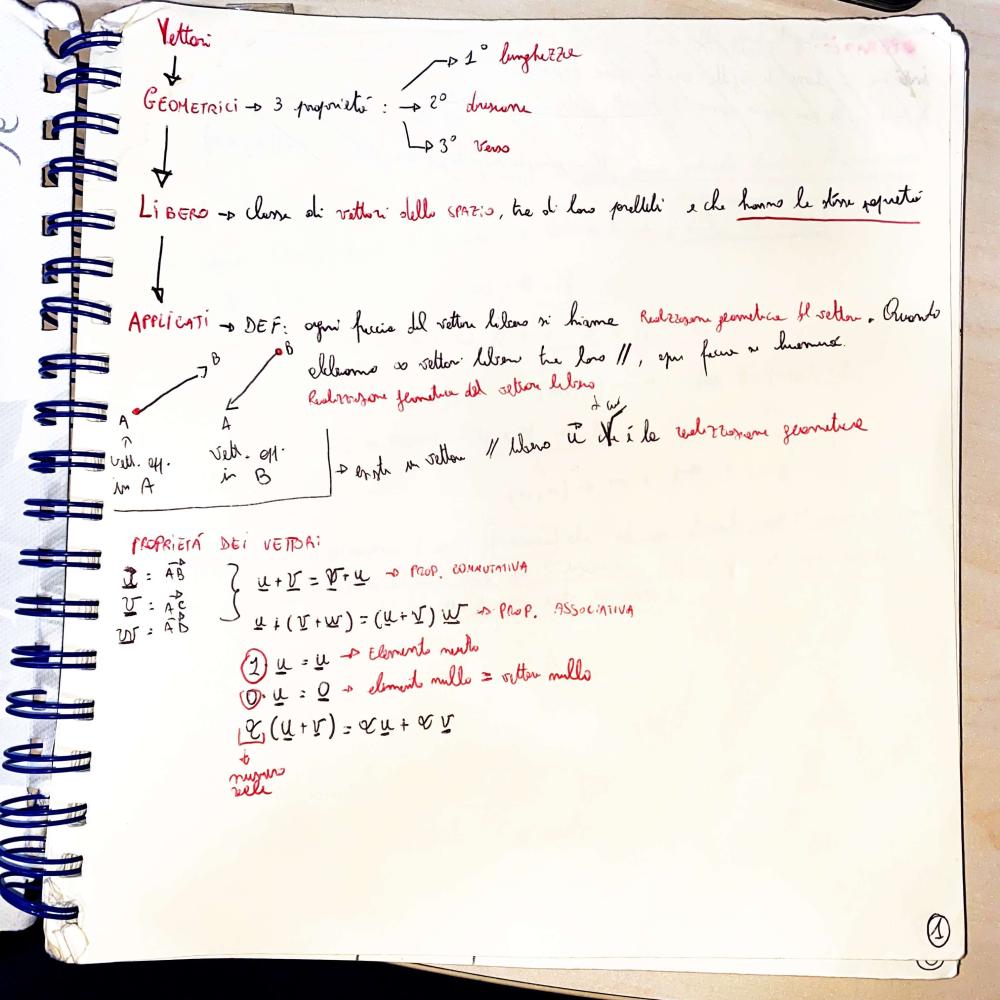 Vettori
GEOMETRICI → 3 proprietá :
→ 1° lunghezza
→ 2° direzione
→ 3° verso
LIBERO → classe di vettori dello SPAZIO, tra di loro paralleli e che hanno le stesse proprietá
APPLICATI → DEF: ogni freccia del vettore libero si chiama Realizzazione geometrica del vettore. Quando
abbiamo ∞ vettori liberi tra loro //, ogni freccia si chiama
Realizzazione geometrica del vettore libero
A B
B A
vett. app. in A
vett. app. in B
→ vettore // libero u⃗ è la realizzazione geometrica
PROPRIETÁ DEI VETTORI
u = AB
v = AC
w = AD
u + v = v + u → PROP. COMMUTATIVA
u + (v + w) = (u + v) w → PROP. ASSOCIATIVA
1 u = u → Elemento neutro
0 · u = 0 → elemento nullo = vettore nullo
α (u + v) = α u + α v
numero
reale
1